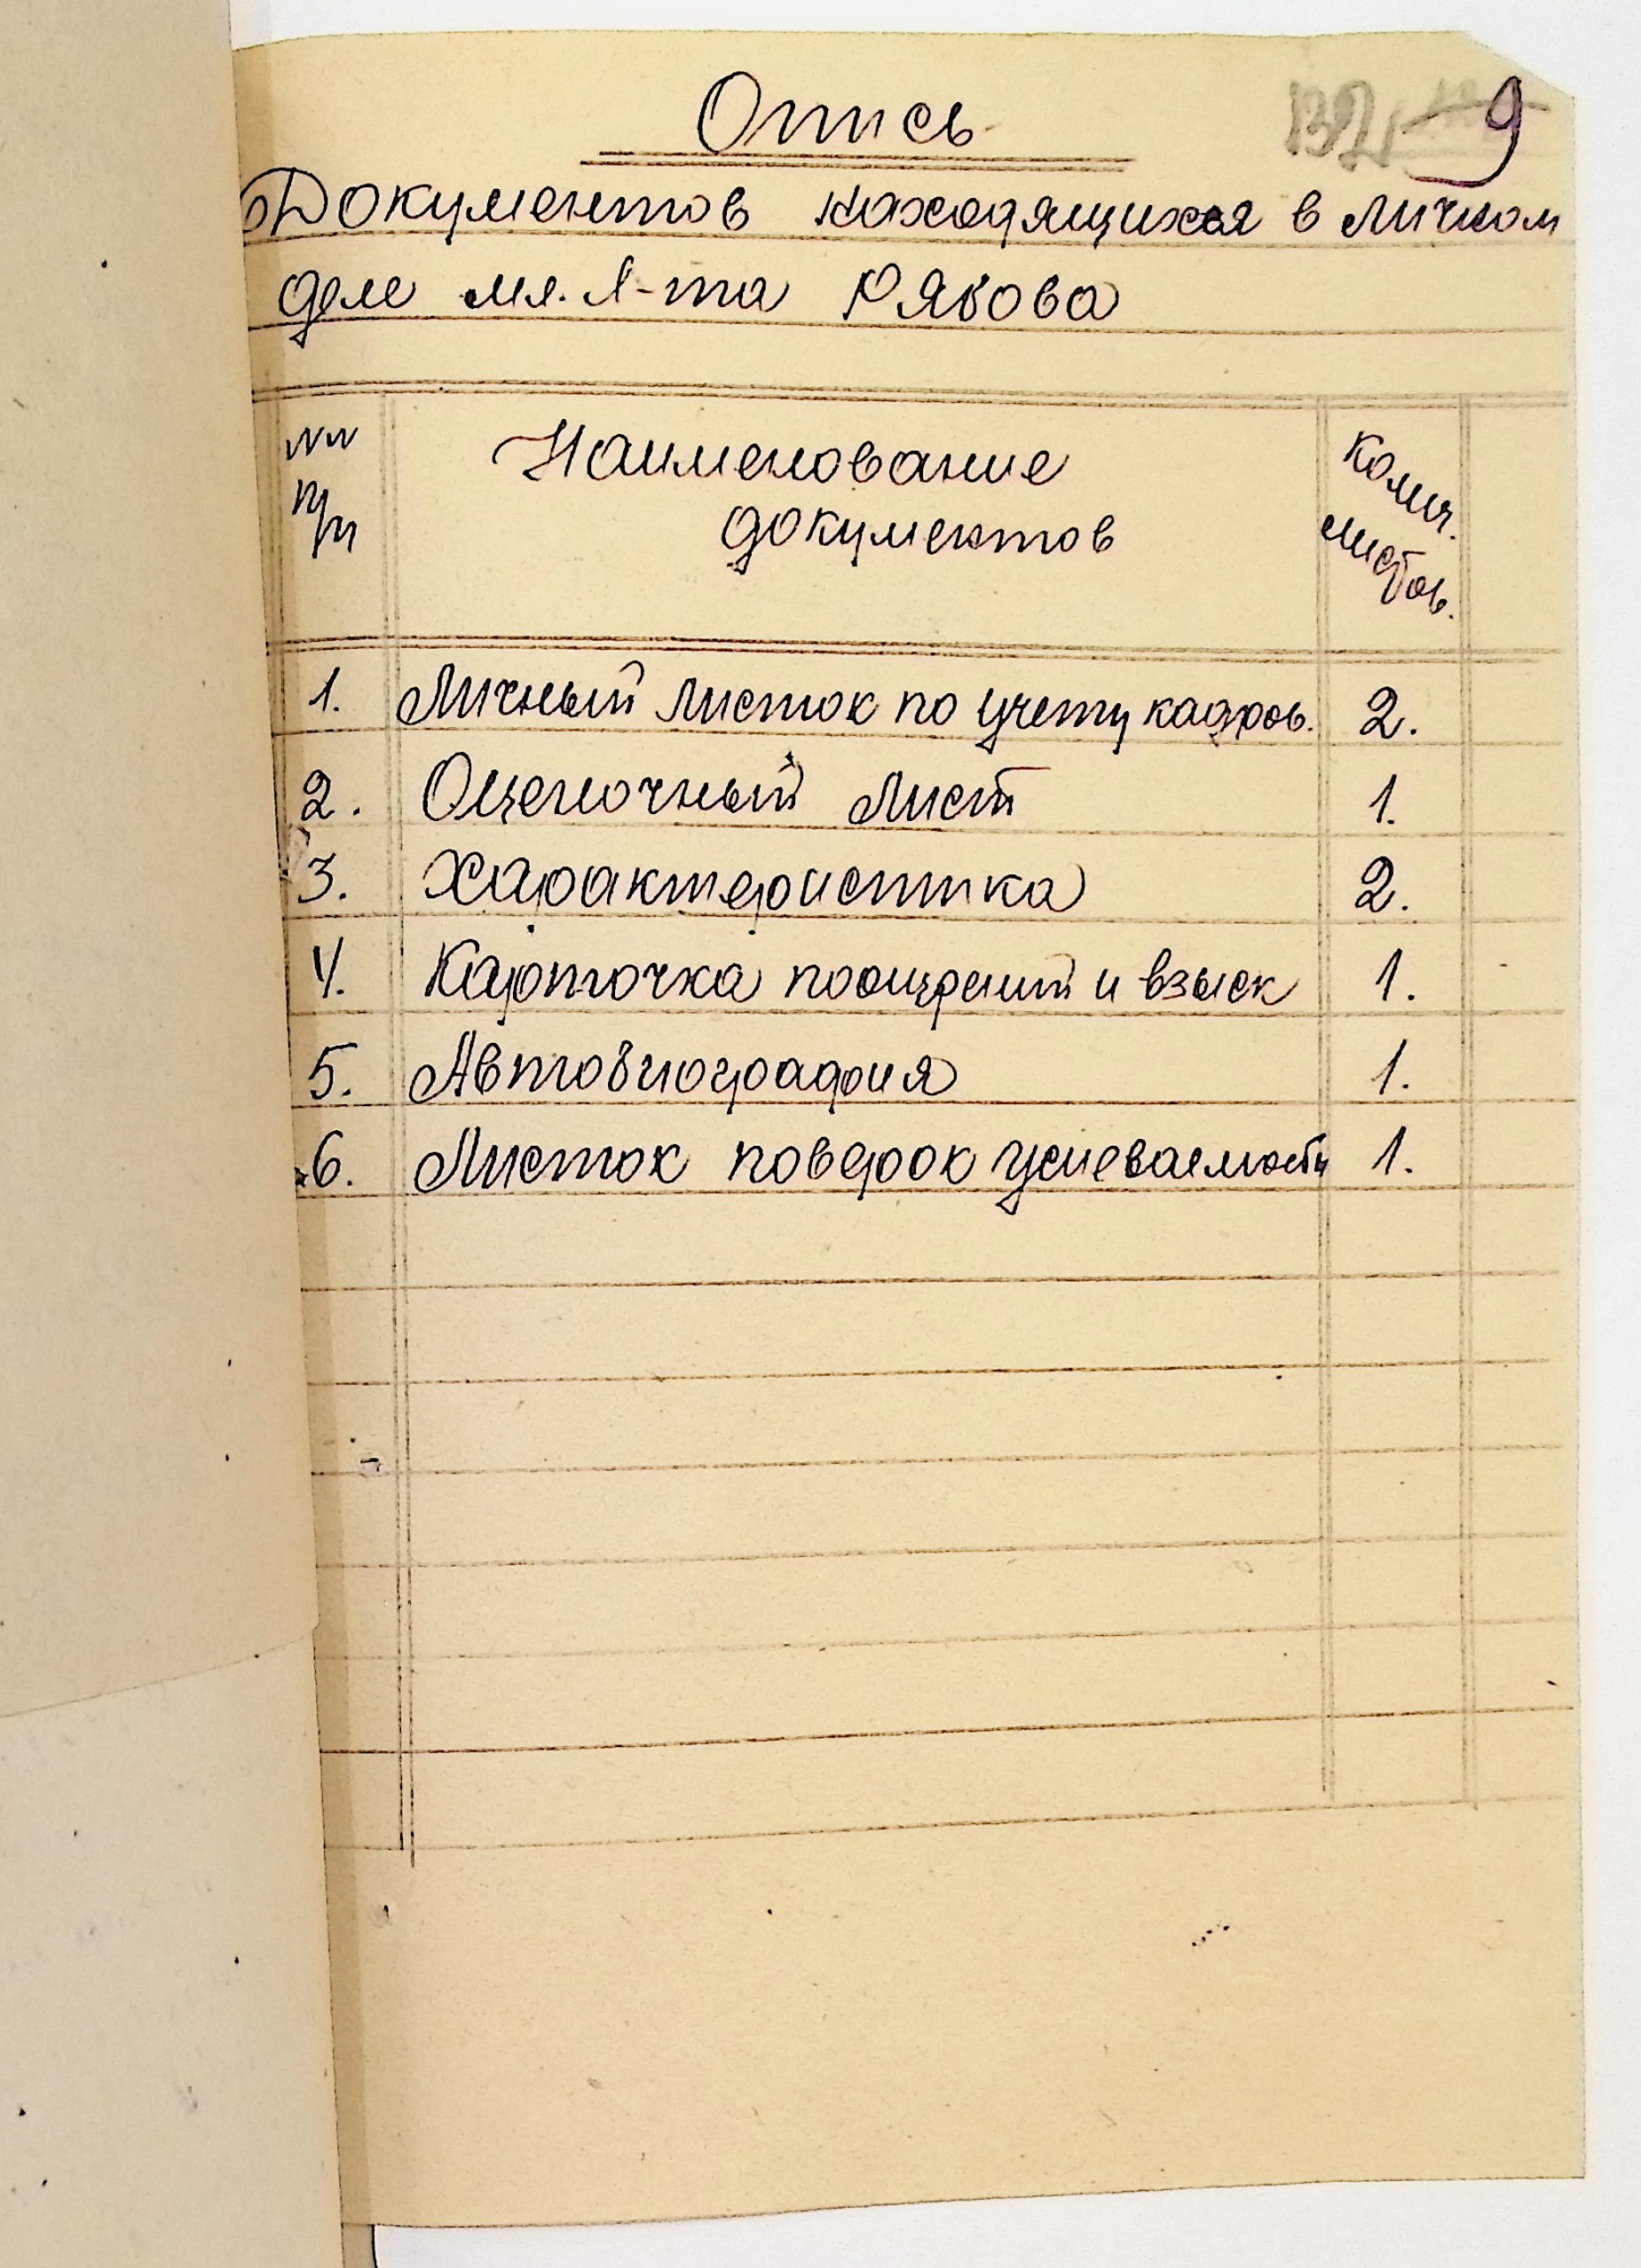 Опись
9
Документов находящихся в личном
деле мл. л-та Рябова
NN
п/п
Наименование
документов
колич.
листов.
1. Личный листок по учету кадров. 2.
2. Оценочный лист 1.
3. Характеристика 2.
4. Карточка поощрений и взыск 1.
5. Автобиография 1.
6. Листок поверок успеваемости 1.